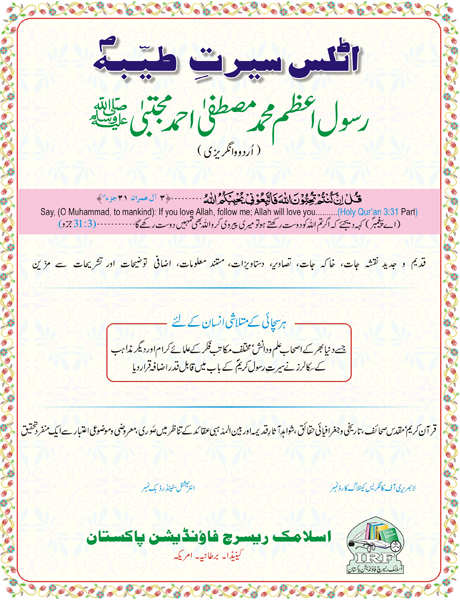 اٹلس سیرتِ طیّبہ ؐ
رسول اعظم محمد مصطفیٰ احمد مجتبیٰ ﷺ
(اُردو و انگریزی)
قُلْ اِنْ كُنْتُمْ تُحِبُّوْنَ اللهَ فَاتَّبِعُوْنِیْ یُحْبِبْكُمُ اللهُ ........ (۳ آل عمران ۳۱ جزء)
Say, (O Muhammad, to mankind): If you love Allah, follow me; Allah will love you..........(Holy Qur'an 3:31 Part)
(اے پیغمبرؐ) کہہ دیجئے کہ اگر تم اللہ کو دوست رکھتے ہو تو میری پیروی کرو اللہ بھی تمہیں دوست رکھے گا ............ (31:3 جزو)
قدیم و جدید نقشہ جات، خاکہ جات، تصاویر، دستاویزات، مستند معلومات، اضافی توضیحات اور تشریحات سے مزّین
ہر سچائی کے متلاشی انسان کے لئے
جسے دنیا بھر کے اصحاب علم و دانش مختلف مکاتب فکر کے علمائے کرام اور دیگر مذاہب
کے سکالرز نے سیرت رسول کریمؐ کے باب میں قابل قدر اضافہ قرار دیا
قرآن کریم، مقدس صحائف، تاریخی و جغرافیائی حقائق، شواہد آثار قدیمہ اور بین المذہبی عقائد کے تناظر میں صوری، معروضی و موضوعی اعتبار سے ایک منفرد تحقیق
لائبریری آف کانگریس کیٹلاگ کارڈ نمبر
انٹرنیشنل سٹینڈرڈ بک نمبر
اسلامک ریسرچ فاؤنڈیشن پاکستان
کینیڈا۔ برطانیہ۔ امریکہ۔
IRF
اسلامک ریسرچ فاؤنڈیشن پاکستان